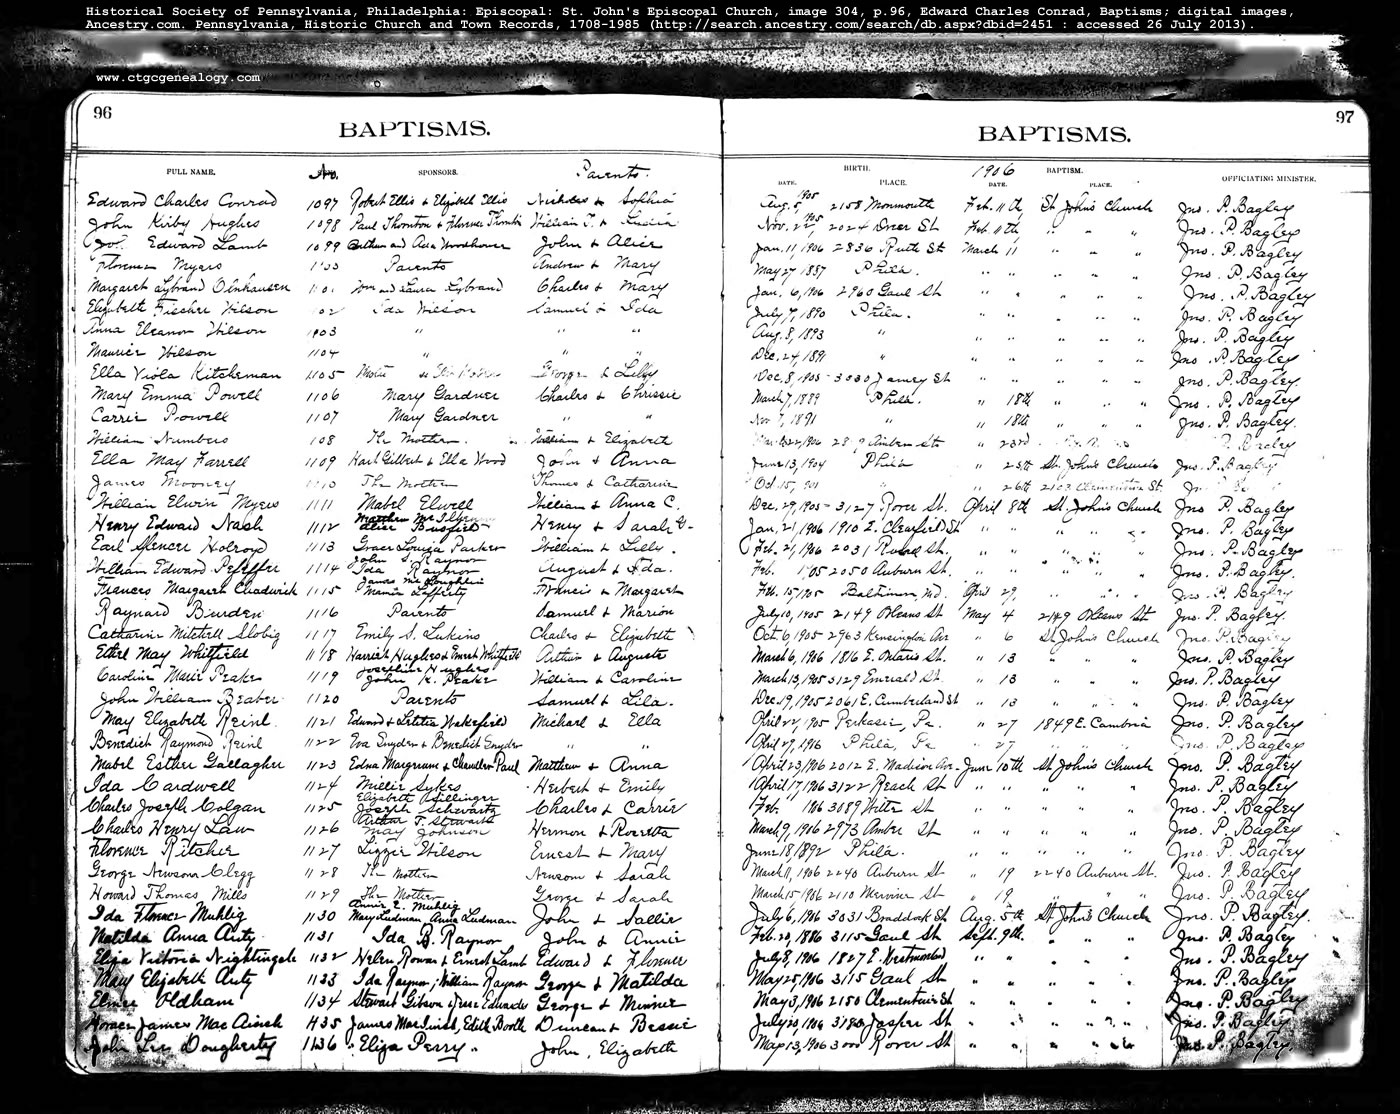 Historical Society of Pennsylvania, Philadelphia: Episcopal: St. John's Episcopal Church, image 304, p.96, Edward Charles Conrad, Baptisms; digital images,
Ancestry.com. Pennsylvania, Historic Church and Town Records, 1708-1985 (http://search.ancestry.com/search/db.aspx?dbid=2451 : accessed 26 July 2013).
www.ctgcgenealogy.com
96 97
BAPTISMS. BAPTISMS.
FULL NAME. No. SPONSORS. Parents. BIRTH. 1906 BAPTISM. OFFICIATING MINISTER.
DATE. PLACE. DATE. PLACE.
Edward Charles Conrad 1097 Robert Ellis & Elizabeth Ellis Nicholas & Sophia Aug. 5 1905 2158 Monmouth Feb. 11th St John's Church Jno. P. Bagley
John Kirby Hughes 1098 Paul Thornton & Florence William T. & Lydia Nov. 1905 2024 Deer St Feb. 11th " " " Jno. P. Bagley
Edward Lamb 1099 and Ada Woodhouse John & Alice Jan. 11, 1906 2836 Ruth St March 11 " " " Jno. P. Bagley
Florence Myers Parents Andrew & Mary May 27 1887 Phila. " " " " " Jno. P. Bagley
Margaret Lybrand and Laura Lybrand Charles & Mary Jan. 6, 1906 2960 Gaul St " " " " " Jno. P. Bagley
Elizabeth Fischer Wilson 02 Ida Wilson Samuel & Ida July 7, 1890 Phila. " " " " " Jno. P. Bagley
Anna Eleanor Wilson 1103 " " " Aug. 8, 1893 " " " " " " Jno. P. Bagley
Maurice Wilson 1104 " " " Dec. 24, 1891 " " " " " " Jno. P. Bagley
Ella Viola Kitchman 1105 George & Lilly Dec. 8, 1905 3030 Janney St " " " " " Jno. P. Bagley
Mary Emma Powell 1106 Mary Gardner Charles & Chrissie March 7, 1889 Phila. " 18th " " " Jno. P. Bagley
Carrie Powell 1107 Mary Gardner " " Nov 7, 1891 " " 18th " " " Jno. P. Bagley
William Numbers 108 The Mother William & Elizabeth Amber St " 23rd P. Bagley
Ella May Farrell 1109 Gilbert & Ella Wood John & Anna June 13, 1904 Phila " 25th St. John's Church Jno. P. Bagley
James Mooney 1110 The Mother Thomas & Catharine Oct. 15, " 26th 2103 Clementine St.
William Elwin Myers 1111 Mabel Elwell William & Anna C. Dec. 29, 1905 3127 Rorer St. April 8th St. John's Church Jno. P. Bagley
Henry Edward Nash 1112 Alice Busfield Henry & Sarah Jan. 21, 1906 1910 E. Clearfield St " " Jno. P. Bagley
Earl Spencer Holroyd 1113 Grace Louisa Parker William & Lilly. Feb. 21, 1906 2031 St. " " Jno. P. Bagley
William Edward Pfeiffer 1114 John S. Raynor Ida Raynor August & Ida. Feb. 2050 Auburn St. " " Jno. P. Bagley.
Frances Margaret Chadwick 1115 James McLoughlin Mamie Lafferty Francis & Margaret Feb. 15, 1905 Baltimore, Md. April 29, " " Jno. P. Bagley
Raynard Burden 1116 Parents Samuel & Marion July 10, 1905 2149 Orleans St May 4 2149 Orleans St Jno. P. Bagley.
Catharine Mitchell Slobig 1117 Emily S. Lukins Charles & Elizabeth Oct. 6, 1905 2963 Kensington Ave " 6 St John's Church Jno. P. Bagley
Ethel May Whitfield 1118 Harriet Hughes & Ernest Whitfield Arthur & Auguste March 6, 1906 1816 E. Ontario St. " 13 " " " Jno. P. Bagley
Caroline Marie Peaker 1119 Josephine Hughes John K. Peaker William & Caroline March 13, 1905 3129 Emerald St. " 13 " " " Jno. P. Bagley
John William Beaber 1120 Parents Samuel & Lila. Dec. 19, 1905 2061 E. Cumberland St " 13 " " " Jno. P. Bagley
May Elizabeth Reinl 1121 Edward & Letitia Wakefield Michael & Ella April 22, 1905 Perkasie, Pa. " 27 1849 E. Cambria Jno. P. Bagley
Benedict Raymond Reinl 1122 Eva Snyder & Benedict Snyder " " April 27, 1906 Phila, Pa " 27 " " " Jno. P. Bagley
Mabel Esther Gallagher 1123 Edna Margrum & Chandler Paul Matthew & Anna April 23, 1906 2012 E. Madison Ave. June 10th St John's Church Jno. P. Bagley
Ida Cardwell 1124 Millie Sykes Herbert & Emily April 17, 1906 3122 Reach St " " " " " Jno. P. Bagley
Charles Joseph Colgan 1125 Elizabeth Billinger Joseph Schwartz Charles & Carrie Feb. 1906 3089 Witte St " " " " " Jno. P. Bagley
Charles Henry Law 1126 Arthur T. Stewart May Johnson Hermon & Rosetta March 9, 1906 2973 Amber St " " " " " Jno. P. Bagley
Florence Ritchie 1127 Lizzie Wilson Ernest & Mary June 18, 1892 Phila. " " " " " Jno. P. Bagley
George Newsom Clegg 1128 The Mother Newsom & Sarah March 11, 1906 2240 Auburn St " 19 2240 Auburn St. Jno. P. Bagley
Howard Thomas Mills 1129 The Mother George & Sarah March 15, 1906 2110 Mervine St " 19 " " Jno. P. Bagley
Ida Florence Muhlig 1130 Annie E. Muhlig Mary Ludman, Anna Ludman John & Sallie July 6, 1906 3031 Braddock St Aug. 5th St John's Church Jno. P. Bagley
Matilda Anna Auty 1131 Ida B. Raynor John & Annie Feb. 20, 1886 3115 Gaul St Sept. 9th. " " " Jno. P. Bagley
Eliza Victoria Nightingale 1132 Helen Rowan & Ernest Lamb Edward & Florence July 8, 1906 1827 E. Westmoreland " " " " " Jno. P. Bagley
May Elizabeth Auty 1133 Ida Raynor, William Raynor George & Matilda May 25, 1906 3115 Gaul St " " " " " Jno. P. Bagley
Elmer Oldham 1134 Stewart Gibson & Jesse Edwards George & Minnie May 3, 1906 2150 Clementine St " " " " " Jno. P. Bagley
Horace James Mac 1135 James MacInish, Edith Booth Duncan & Bessie July 20, 1906 Jasper St " " " " " Jno. P. Bagley
John Leo Dougherty 1136 " Eliza Perry " John, Elizabeth May 13, 1906 3000 Rorer St " " " " " Jno. P. Bagley.